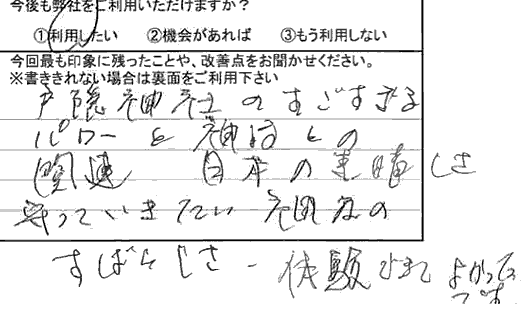 今後も弊社をご利用いただけますか？
①利用したい ②機会があれば ③もう利用しない
今回最も印象に残ったことや、改善点をお聞かせください。
※書ききれない場合は裏面をご利用下さい
戸隠神社のすごすぎる
パワーと神話との
関連 日本の素晴しさ
守っていきたい
すばらしさ 体験できて よかった
です